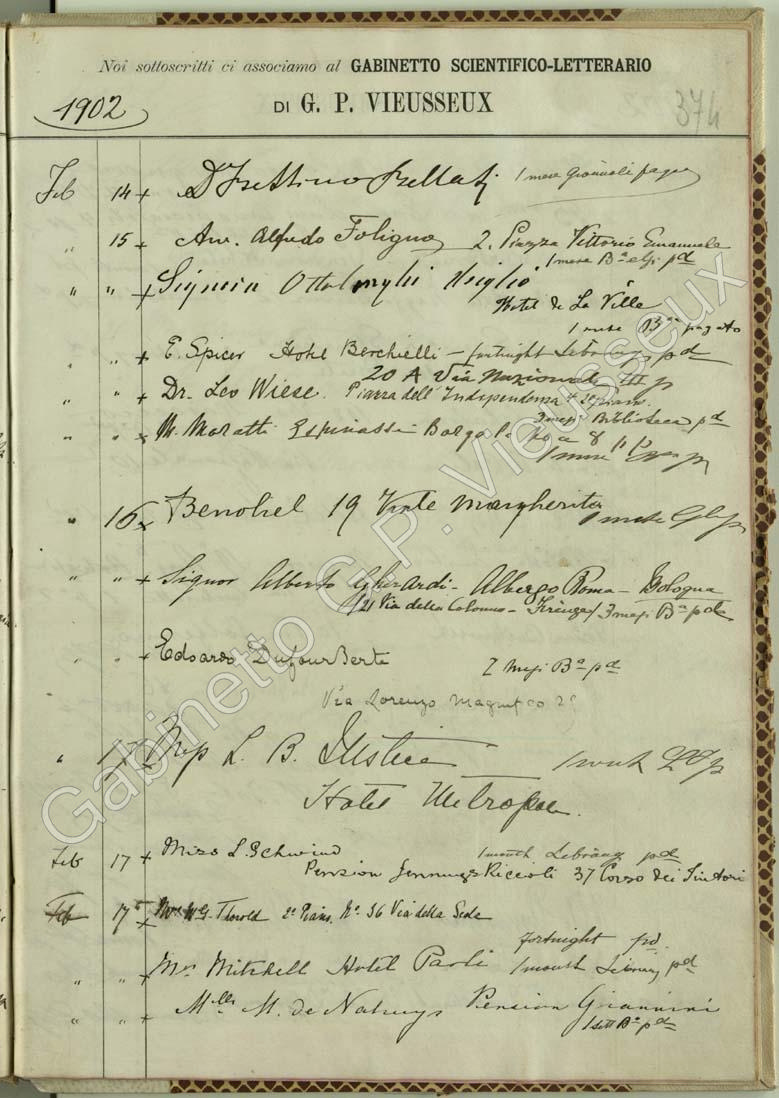 Noi sottoscritti ci associamo al GABINETTO SCIENTIFICO-LETTERARIO
1902 DI G. P. VIEUSSEUX 374
Feb 14 + Dr 1 mese Giornali
" 15 + Avv. Alfredo Foligno 2. Piazza Vittorio Emanuele
1 mese Ba e Gi pd
" " + Ottolenghi
Hotel de La Ville
1 mese Ba pagato
" " + E. Spicer Hotel Berchielli – fortnight Library pd
20 A Via Nazionale III p
" " + Dr. Leo Wiese. Piazza dell'Indipendenza
3 mesi Biblioteca pd
" " x M. Moratti Espinassi Borgo
1 mese
" 16 x 19 Viale Margherita 1 mese
" " + Signor Alberto Gherardi – Albergo Roma – Bologna
/21 Via della Colonna – Firenze/ 3 mesi Ba pd
" " + Edoardo Dufour Berte 2 Mesi Ba pd
Via Lorenzo Magnifico
" 17 L. B. Justice 1 week
Hotel Metropole.
Feb 17 + Miss L. Schwind 1 month Library pd
Pension Jennings Riccioli 37 Corso dei Tintori
Feb 17 + Thorold 2o Piano. No. 36 Via della Scala
fortnight pd.
" " + Mrs Mitchell Hotel Paoli 1 month Library pd
" " + Mlle M. de Nahuys Pension Giannini
1 sett Ba pd
Gabinetto G.P. Vieusseux